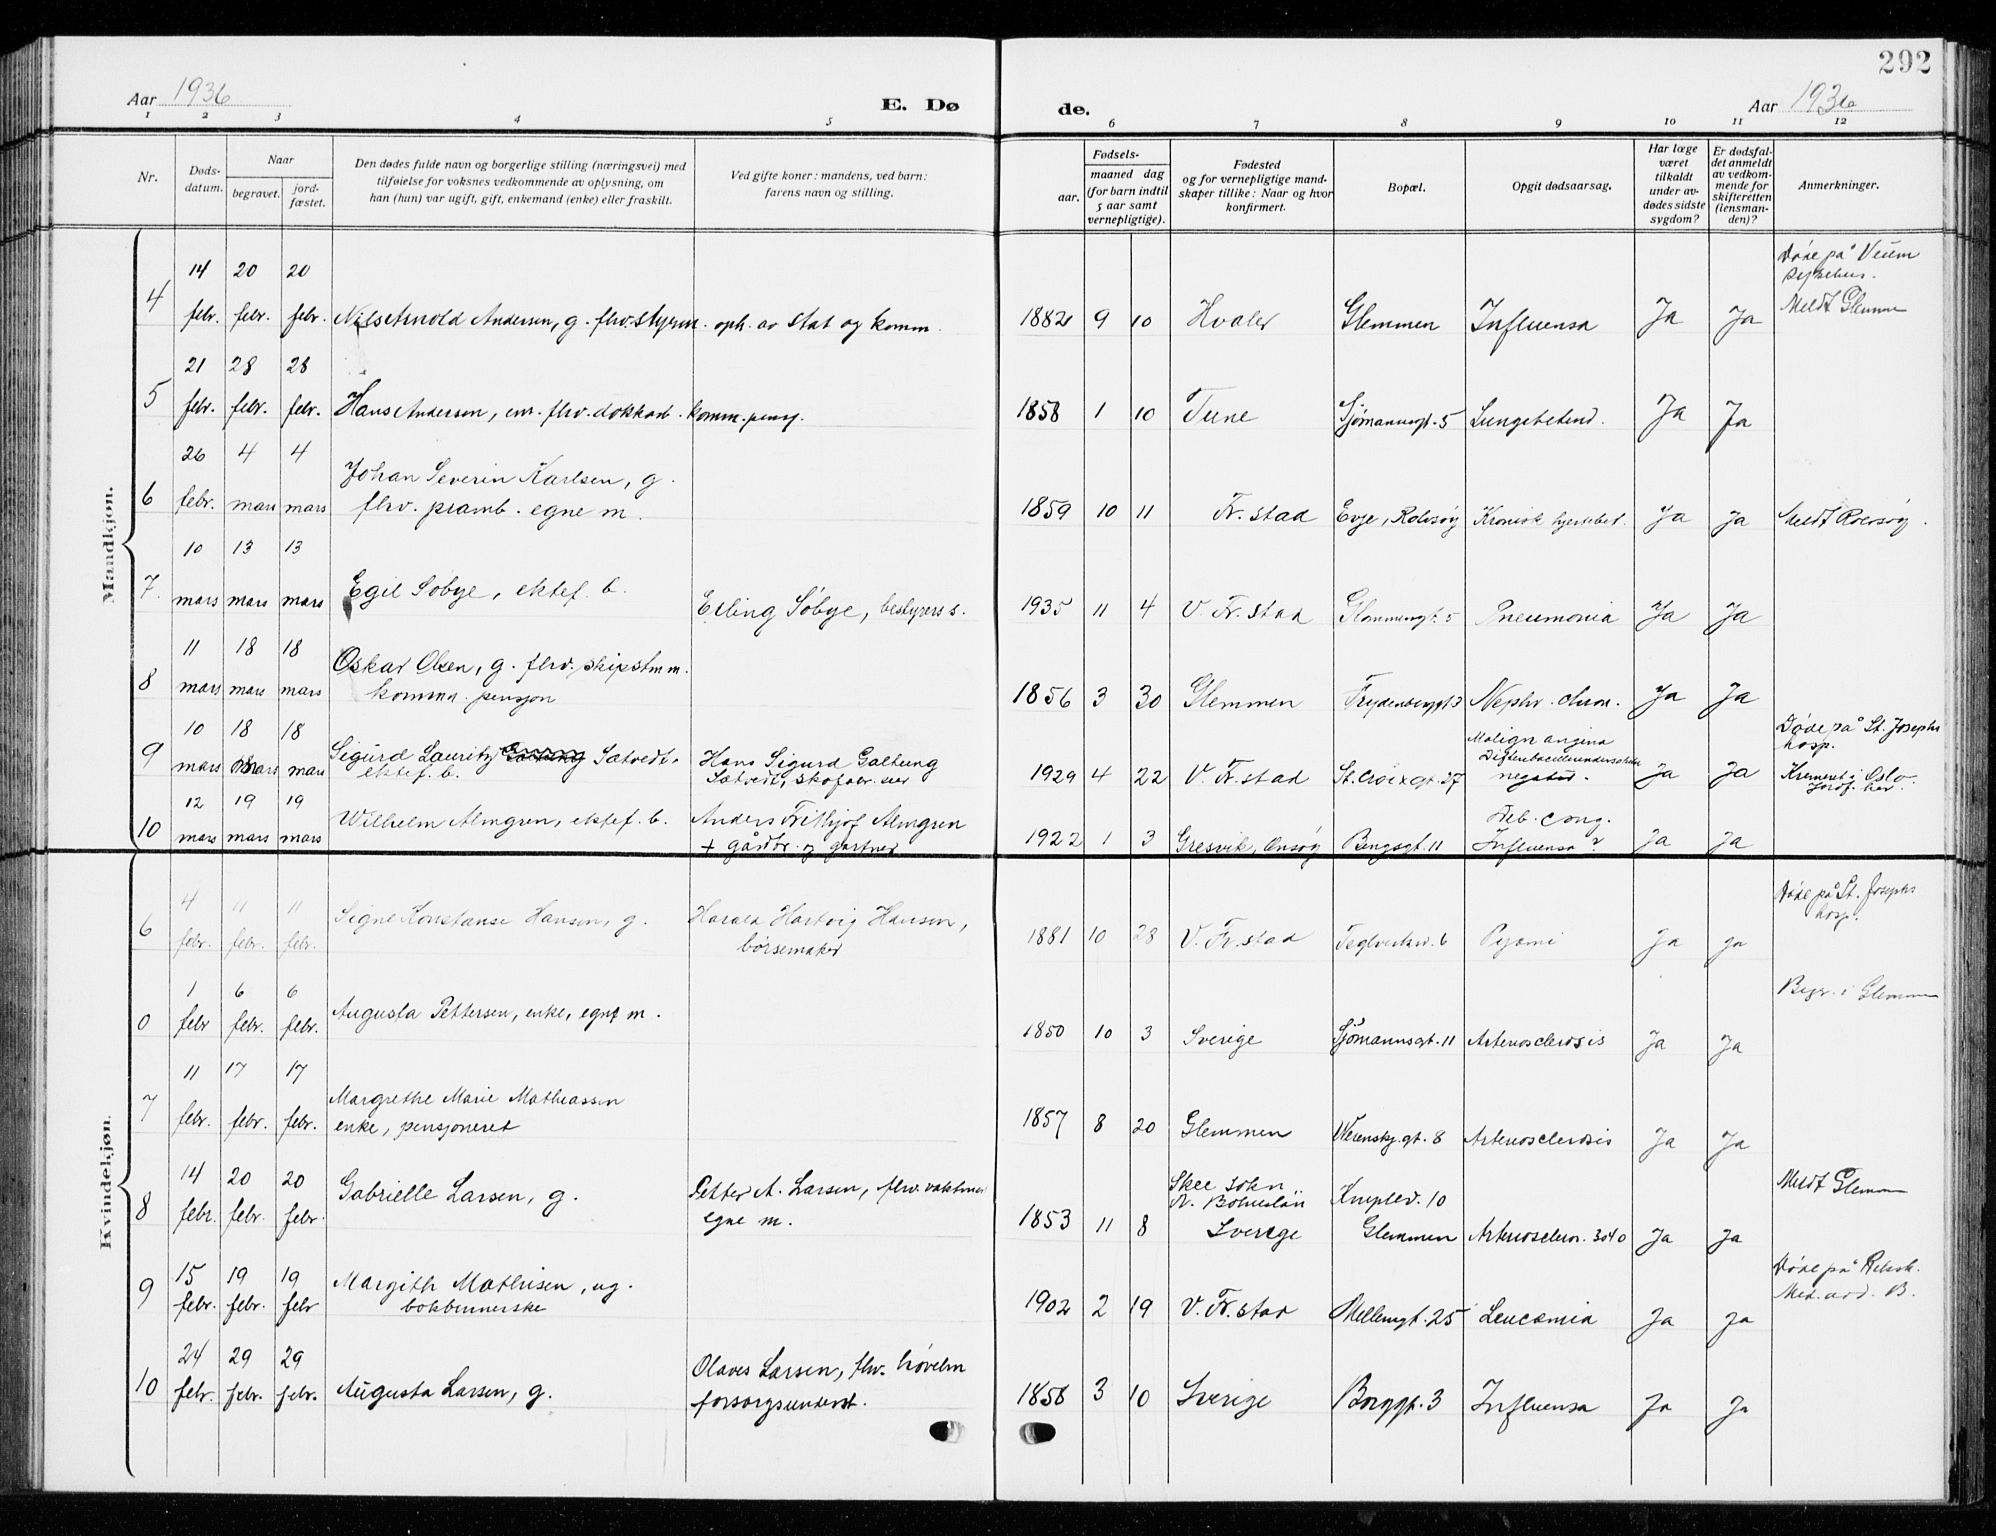 292
Aar 1936
E. Dø
de.
Aar 1936
1 2 3 4 5 6 7 8 9 10 11 12
Nr.
Døds-
datum.
Naar
begravet.
jord-
fæstet.
Den dødes fulde navn og borgerlige stilling (næringsvei) med
tilføielse for voksnes vedkommende av oplysning, om
han (hun) var ugift, gift, enkemand (enke) eller fraskilt.
Ved gifte koner: mandens, ved barn:
farens navn og stilling.
Fødsels-
aar.
maaned dag
(for barn indtil
5 aar samt
vernepligtige).
Fødested
og for vernepligtige mand-
skaper tillike: Naar og hvor
konfirmert.
Bopæl.
Opgit dødsaarsag.
Har læge
været
tilkaldt
under av-
dødes sidste
sygdom?
Er dødsfal-
det anmeldt
av vedkom-
mende for
skifteretten
(lensman-
den)?
Anmerkninger.
Mandkjøn.
14 20 20 Døde på Veum
sykehus.
4 febr. febr. febr. Nils Arnold Andersen, g. fhv. styrm. oph. av stat og komm. 1882 9 10 Hvaler Glemmen Influensa Ja Ja Meldt Glemm
21 28 28
5 febr. febr. febr. Hans Anderson, em. fhv. dokkarb. komm. pensj. 1858 1 10 Tune Sjømannsgt. 5 Lungebetend. Ja Ja
26 4 4 Johan Severin Karlsen, g.
6 febr. mars mars fhv. pramb. egne m. 1859 10 11 Fr.stad Evje, Rolvsøy Kronisk hjertebet. Ja Ja Meldt Rolvsøy.
10 13 13 Egil Søbye, ektef. b.
7. mars mars mars Erling Søbye, bestyrers s. 1935 11 4 V. Fr.stad Glommengt. 5 Pneumonia Ja Ja
11 18 18 Oskar Olsen, g. fhv. skipstm m.
8 mars mars mars komm. pensjon 1856 3 30 Glemmen Frydenberggt 3 Nephr. chron. Ja Ja
10 18 18 Sigurd Lauritz Sætvedt, Hans Sigurd Galtung Malign angina Døde på St. Josephs
hosp.
9 mars mars mars ektef. b. Sætvedt, skofabr. eier 1929 4 22 V. Fr.stad St. Croixgt. 27 negativ. Ja Ja Kremert i Oslo.
Jordf. her.
12 19 19 Wilhelm Almgren, ektef. b. Anders Frithjof Almgren Deb. cong.
10 mars mars mars + gårdbr. og gartner 1922 1 3 Gresvik, Onsøy Bengsgt. 11 Influensa? Ja Ja
Kvindekjøn.
4 11 11 Signe Konstanse Hansen, g. Harald Hartvig Hansen, Døde på St. Josephs
hosp.
6 febr. febr. febr. børsemaker 1881 10 28 V. Fr.stad Teglverksv. 6 Pyæmi Ja Ja
1 6 6 Begr. i Glemmen
0 febr febr. febr. Augusta Pettersen, enke, egne m. 1850 10 3 Sverige Sjømannsgt. 11 Arteriosclerosis Ja Ja
11 17 17 Margrethe Marie Mathiassen
7 febr. febr. febr. enke, pensjoneret 1857 8 20 Glemmen Werenskj.gt. 8 Arteriosclerosis Ja Ja
14 20 20 Gabrielle Larsen, g. Petter A. Larsen, fhv. vaktm. Skee sokn
N. Bohuslän Kniplev. 10 Meldt Glemm
8 febr. febr. febr. egne m. 1853 11 8 Sverige Glemmen Arterioscleros. Ja Ja
15 19 19 Margith Mathisen, ug. Døde på Riksh.
Med. avd. B.
9 febr. febr. febr bokbinnerske 1902 2 19 V. Fr.stad Mellemgt. 25 Leucæmia Ja Ja
24 29 29 Olaves Larsen, fhv. høvelm
10 febr. febr. febr. Augusta Larsen, g. forsorgsunderst. 1858 3 10 Sverige Borggt. 3 Influensa Ja Ja